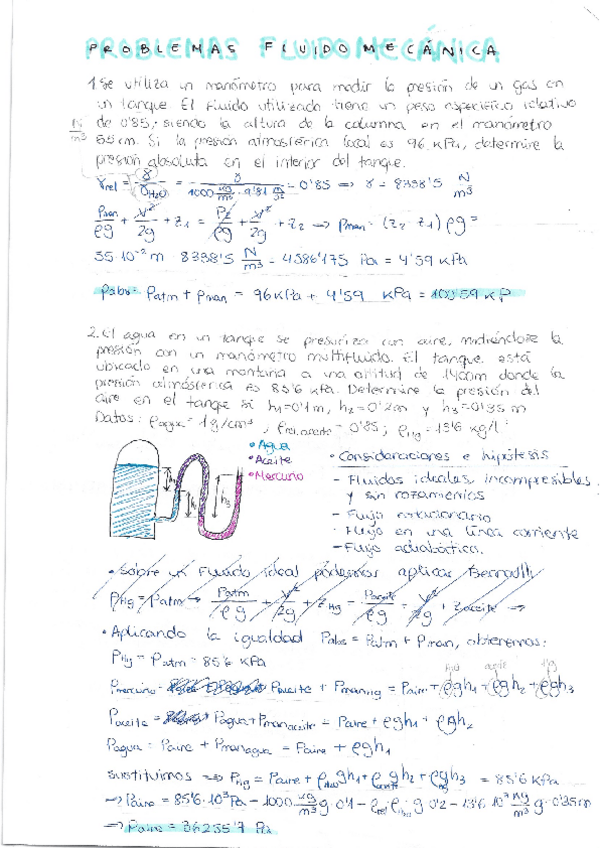 PROBLEMAS FLUIDOMECÁNICA
1. Se utiliza un manómetro para medir la presión de un gas en
un tanque. El fluido utilizado tiene un peso específico relativo
de 0'85, siendo la altura de la columna en el manómetro
N/m³
55cm. Si la presión atmosférica local es 96 kPa, determine la
presión absoluta en el interior del tanque.
γrel = γ/γH2O = γ/(1000 kg/m³ · 9'81 m/s²) = 0'85 ⇒ γ = 8338'5 N/m³
Pman/ρg + V²/2g + z1 = P2/ρg + V²/2g + z2 → Pman = (z2 - z1) ρg =
55·10⁻² m · 8338'5 N/m³ = 4586'175 Pa = 4'59 kPa
Pabs = Patm + Pman = 96 kPa + 4'59 kPa = 100'59 kP
2. El agua en un tanque se presuriza con aire, midiéndose la
presión con un manómetro multifluido. El tanque está
ubicado en una montaña a una altitud de 1400m donde la
presión atmosférica es 85'6 kPa. Determine la presión del
aire en el tanque si h1=0'1m, h2=0'2m y h3=0'35 m
Datos: ρagua = 1g/cm³, ρrel,aceite = 0'85; ρHg = 13'6 kg/l
• Agua
• Aceite
• Mercurio
h1
h2
h3
• Consideraciones e hipótesis
- Fluidos ideales, incompresibles
y sin rozamientos
- Flujo estacionario
- Flujo en una línea corriente
- Flujo adiabático.
• Sobre un fluido ideal podemos aplicar Bernoulli
PHg = Patm → Patm/ρg + V²/2g + zHg = Paceite/ρg + V²/2g + zaceite →
• Aplicando la igualdad Pabs = Patm + Pman, obtenemos:
PHg = Patm = 85'6 kPa
agua aceite Hg
Pmercurio = Paceite + PmanHg = Paire + ρgh1 + ρgh2 + ρgh3
Paceite = Pagua + Pmanaceite = Paire + ρgh1 + ρgh2
Pagua = Paire + Pmanagua = Paire + ρgh1
Sustituimos ⇒ PHg = Paire + ρagua gh1 + ρaceite gh2 + ρHg gh3 = 85'6 kPa
→ Paire = 85'6·10³ Pa - 1000 kg/m³ g · 0'1 - ρrel ρagua g 0'2 - 13'6 10³ kg/m³ g · 0'35m
→ Paire = 36255'7 Pa